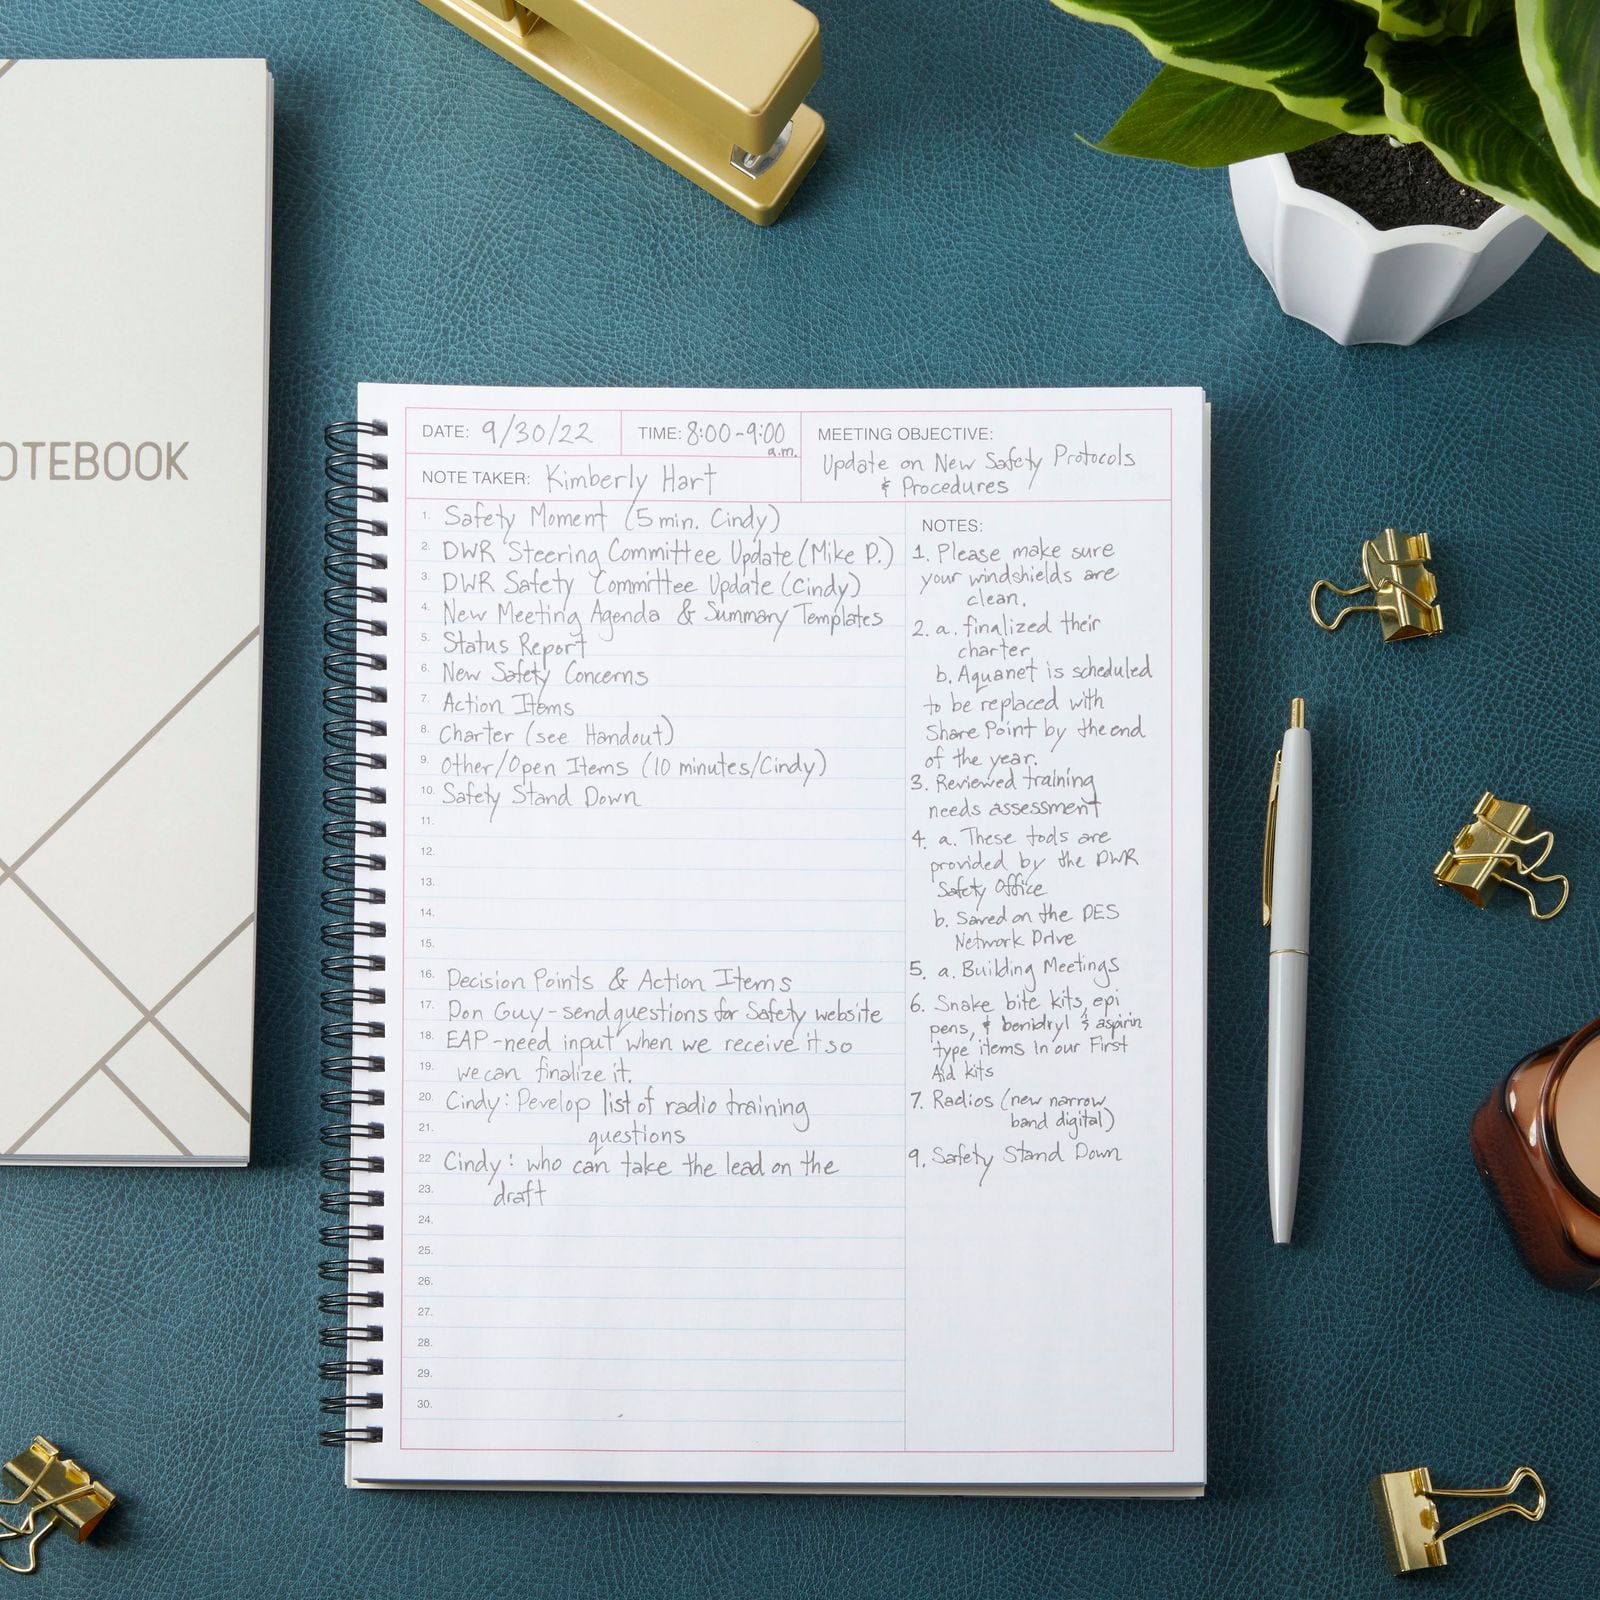 OTEBOOK
DATE: 9/30/22 TIME: 8:00-9:00 a.m.
MEETING OBJECTIVE:
Update on New Safety Protocols
& Procedures
NOTE TAKER: Kimberly Hart
1. Safety Moment (5 min. Cindy)
2. DWR Steering Committee Update (Mike P.)
3. DWR Safety Committee Update (Cindy)
4. New Meeting Agenda & Summary Templates
5. Status Report
6. New Safety Concerns
7. Action Items
8. Charter (see Handout)
9. Other/Open Items (10 minutes/Cindy)
10. Safety Stand Down
11.
12.
13.
14.
15.
16. Decision Points & Action Items
17. Don Guy - send questions for Safety website
18. EAP - need input when we receive it so
19. we can finalize it.
20. Cindy: Develop list of radio training
21. questions
22 Cindy: who can take the lead on the
23. draft
24.
25.
26.
27.
28.
29.
30.
NOTES:
1. Please make sure
your windshields are
clean.
2. a. finalized their
charter
b. Aquanet is scheduled
to be replaced with
Share Point by the end
of the year.
3. Reviewed training
needs assessment
4. a. These tools are
provided by the DWR
Safety Office
b. Saved on the DES
Network Drive
5. a. Building Meetings
6. Snake bite kits, epi
pens, & benidryl & aspirin
type items in our First
Aid kits
7. Radios (new narrow
band digital)
9. Safety Stand Down